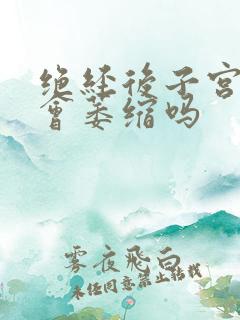 绝经后子宫
会萎缩吗
雾夜飞白
未经同意禁止转载